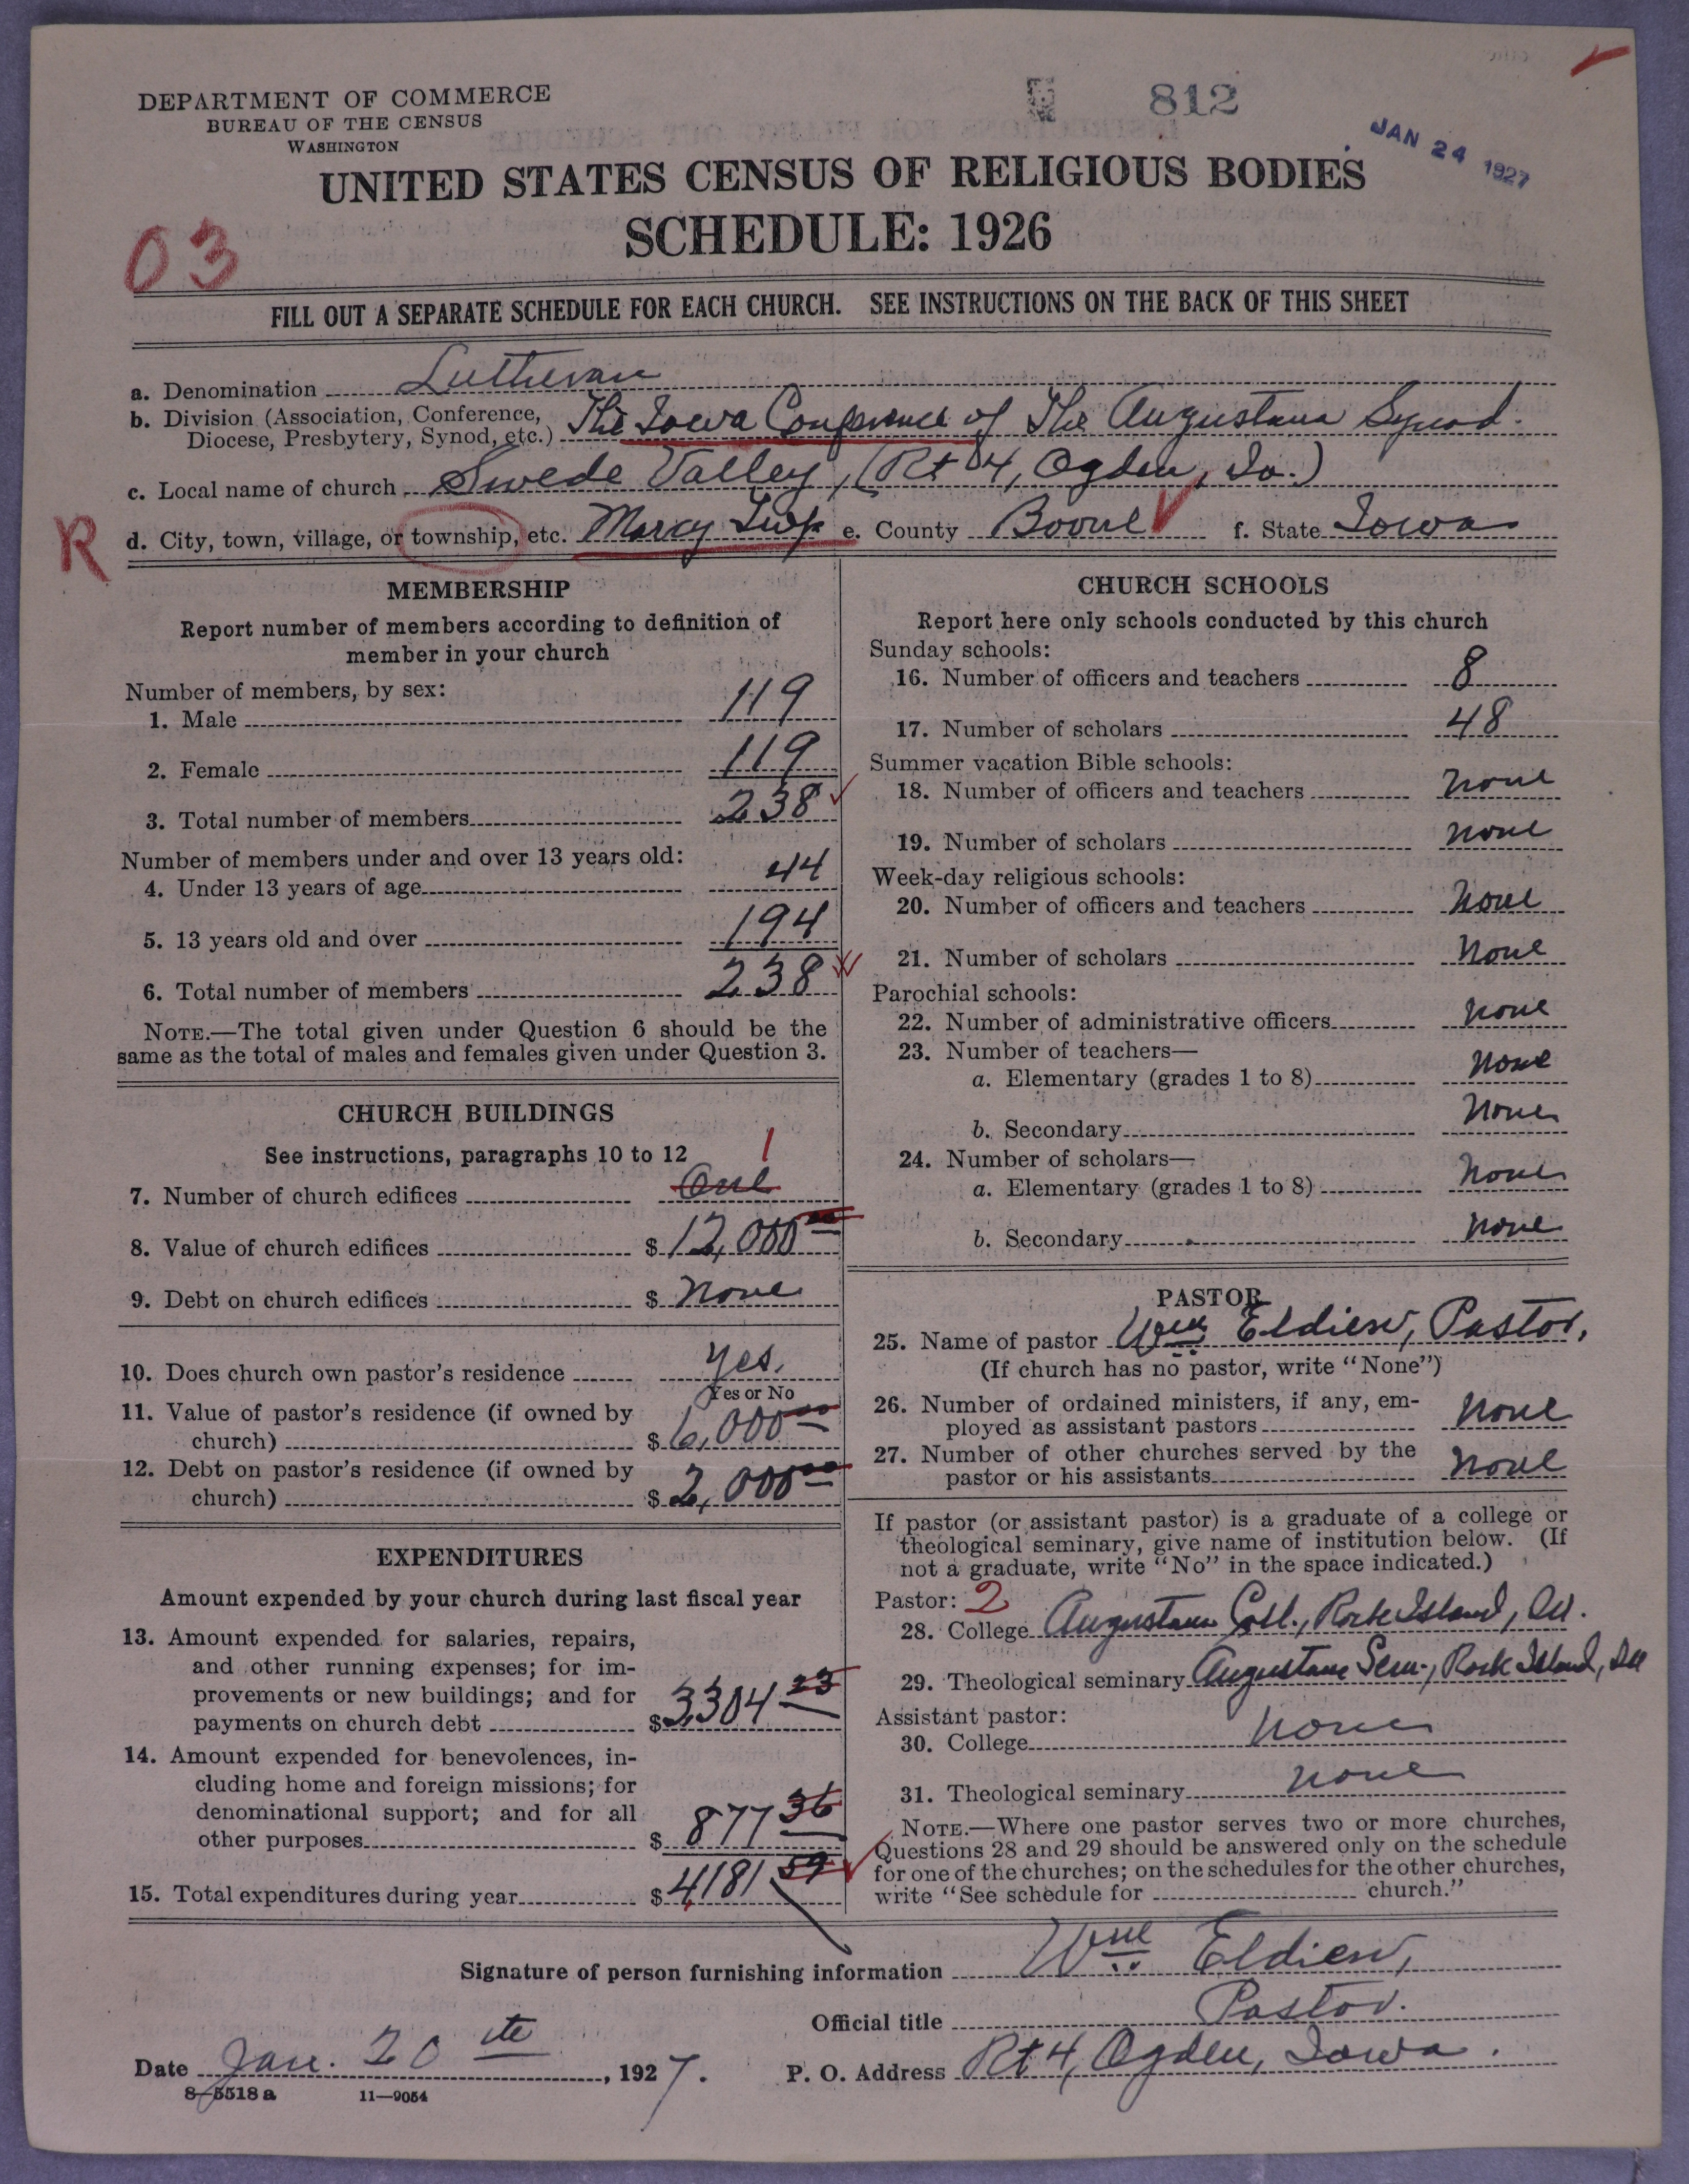 DEPARTMENT OF COMMERCE
BUREAU OF THE CENSUS
WASHINGTON
812
JAN 24 1927
UNITED STATES CENSUS OF RELIGIOUS BODIES
SCHEDULE: 1926
03
FILL OUT A SEPARATE SCHEDULE FOR EACH CHURCH. SEE INSTRUCTIONS ON THE BACK OF THIS SHEET
a. Denomination Lutheran
b. Division (Association, Conference, Diocese, Presbytery, Synod, etc.) The Iowa Conference of The Augustana Synod.
c. Local name of church Swede Valley, (Rt 4, Ogden, Io.)
R d. City, town, village, or township, etc. Marcy Twp e. County Boone f. State Iowa
MEMBERSHIP
Report number of members according to definition of
member in your church
Number of members, by sex:
1. Male 119
2. Female 119
3. Total number of members 238
Number of members under and over 13 years old:
4. Under 13 years of age 44
5. 13 years old and over 194
6. Total number of members 238
NOTE.—The total given under Question 6 should be the
same as the total of males and females given under Question 3.
CHURCH BUILDINGS
See instructions, paragraphs 10 to 12
1
7. Number of church edifices One
8. Value of church edifices $ 12,000 00
9. Debt on church edifices $ None
10. Does church own pastor's residence Yes.
Yes or No
11. Value of pastor's residence (if owned by
church) $ 6,000 00
12. Debt on pastor's residence (if owned by
church) $ 2,000 00
EXPENDITURES
Amount expended by your church during last fiscal year
13. Amount expended for salaries, repairs,
and other running expenses; for im-
provements or new buildings; and for
payments on church debt $ 3,304 23
14. Amount expended for benevolences, in-
cluding home and foreign missions; for
denominational support; and for all
other purposes $ 877 36
15. Total expenditures during year $ 4,181 59
CHURCH SCHOOLS
Report here only schools conducted by this church
Sunday schools:
16. Number of officers and teachers 8
17. Number of scholars 48
Summer vacation Bible schools:
18. Number of officers and teachers None
19. Number of scholars None
Week-day religious schools:
20. Number of officers and teachers None
21. Number of scholars None
Parochial schools:
22. Number of administrative officers None
23. Number of teachers—
a. Elementary (grades 1 to 8) None
b. Secondary None
24. Number of scholars—
a. Elementary (grades 1 to 8) None
b. Secondary None
PASTOR
25. Name of pastor Wm. Eldien, Pastor.
(If church has no pastor, write "None")
26. Number of ordained ministers, if any, em-
ployed as assistant pastors None
27. Number of other churches served by the
pastor or his assistants None
If pastor (or assistant pastor) is a graduate of a college or
theological seminary, give name of institution below. (If
not a graduate, write "No" in the space indicated.)
Pastor: 2
28. College Augustana Coll., Rock Island, Ill.
29. Theological seminary Augustana Sem., Rock Island, Ill
Assistant pastor:
30. College None
31. Theological seminary None
NOTE.—Where one pastor serves two or more churches,
Questions 28 and 29 should be answered only on the schedule
for one of the churches; on the schedules for the other churches,
write "See schedule for church."
Signature of person furnishing information Wm. Eldien,
Official title Pastor.
Date Jan. 20 th, 1927. P. O. Address Rt 4, Ogden, Iowa.
8-5518 a 11—9054